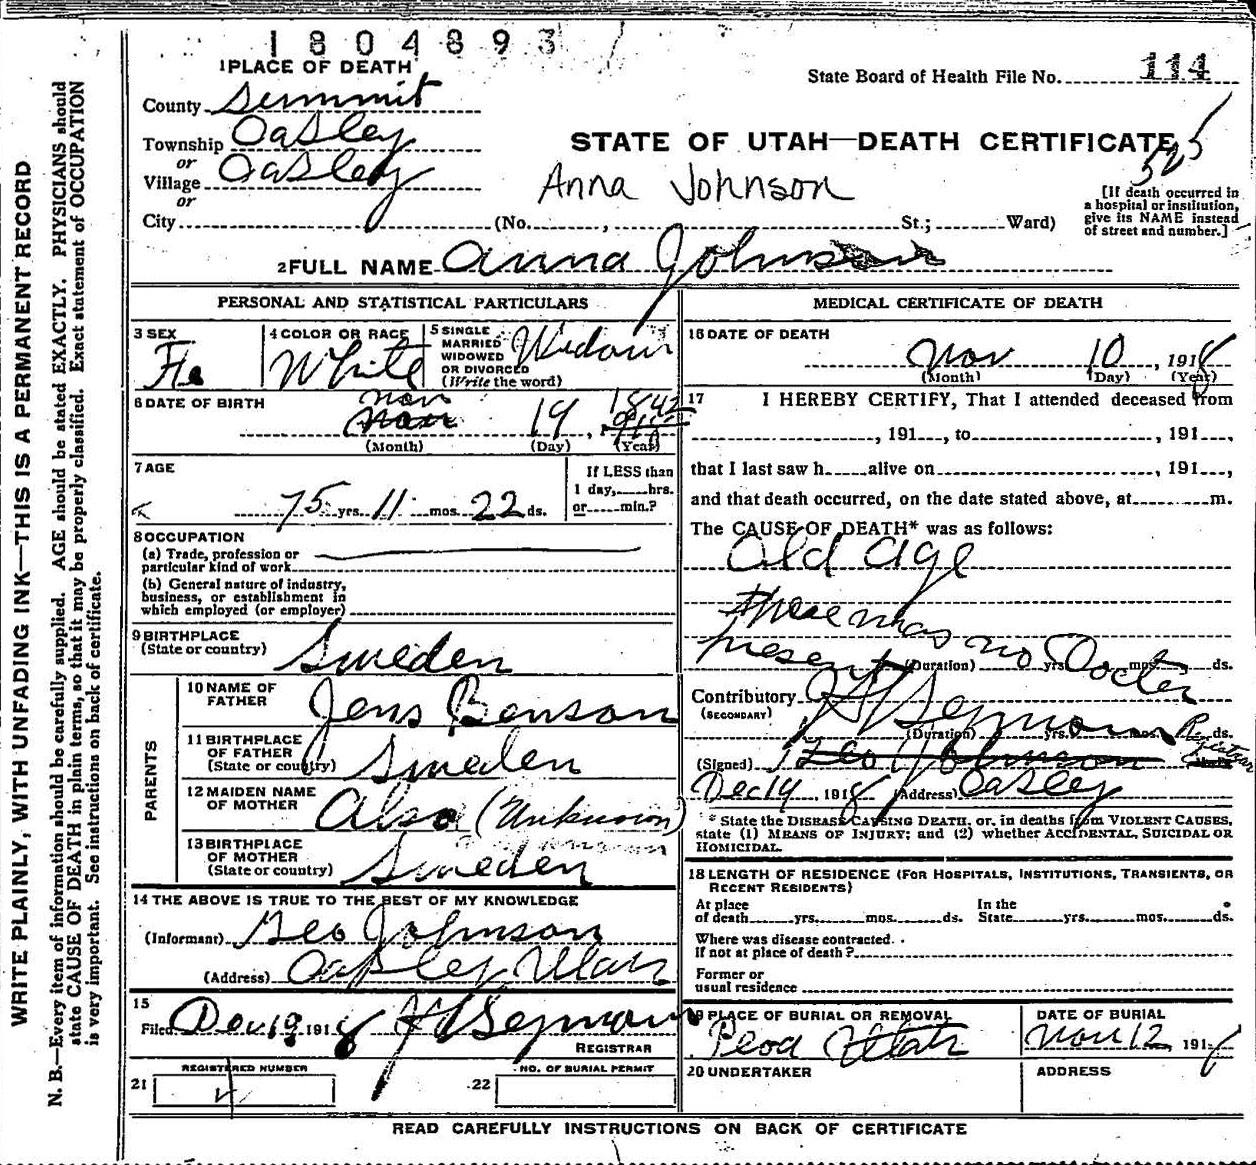 1804893
1 PLACE OF DEATH
State Board of Health File No. 114
County Summit
Township Oakley
or
Village Oakley
or
City (No. , St.; Ward)
STATE OF UTAH—DEATH CERTIFICATE
525
Anna Johnson
[If death occurred in
a hospital or institution,
give its NAME instead
of street and number.]
2 FULL NAME Anna Johnson
PERSONAL AND STATISTICAL PARTICULARS
3 SEX
Fe
4 COLOR OR RACE
White
5 SINGLE
MARRIED
WIDOWED
OR DIVORCED
(Write the word)
Widow
6 DATE OF BIRTH
Nov 19, 1842
(Month) (Day) (Year)
7 AGE
75 yrs. 11 mos. 22 ds.
If LESS than
1 day, hrs.
or min.?
8 OCCUPATION
(a) Trade, profession or
particular kind of work
(b) General nature of industry,
business, or establishment in
which employed (or employer)
9 BIRTHPLACE
(State or country) Sweden
PARENTS
10 NAME OF
FATHER Jens Benson
11 BIRTHPLACE
OF FATHER
(State or country) Sweden
12 MAIDEN NAME
OF MOTHER (Unknown)
13 BIRTHPLACE
OF MOTHER
(State or country) Sweden
14 THE ABOVE IS TRUE TO THE BEST OF MY KNOWLEDGE
(Informant) Geo Johnson
(Address) Oakley, Utah
15
Filed Dec 19 1918
REGISTRAR
REGISTERED NUMBER
21
NO. OF BURIAL PERMIT
22
MEDICAL CERTIFICATE OF DEATH
16 DATE OF DEATH
Nov 10, 1918
(Month) (Day) (Year)
17 I HEREBY CERTIFY, That I attended deceased from
, 191 , to , 191 ,
that I last saw h alive on , 191 ,
and that death occurred, on the date stated above, at m.
The CAUSE OF DEATH* was as follows:
Old age
there was no Doctor
present
(Duration) yrs. mos. ds.
Contributory
(SECONDARY)
(Duration) yrs. mos. ds.
Registrar
(Signed) Geo Johnson
Dec 14, 1918 (Address) Oakley
* State the DISEASE CAUSING DEATH, or, in deaths from VIOLENT CAUSES,
state (1) MEANS OF INJURY; and (2) whether ACCIDENTAL, SUICIDAL OR
HOMICIDAL.
18 LENGTH OF RESIDENCE (FOR HOSPITALS, INSTITUTIONS, TRANSIENTS, OR
RECENT RESIDENTS)
At place
of death yrs. mos. ds.
In the
State yrs. mos. ds.
Where was disease contracted.
If not at place of death?
Former or
usual residence
19 PLACE OF BURIAL OR REMOVAL
Peoa Utah
DATE OF BURIAL
Nov 12, 1918
20 UNDERTAKER
ADDRESS
READ CAREFULLY INSTRUCTIONS ON BACK OF CERTIFICATE
WRITE PLAINLY, WITH UNFADING INK—THIS IS A PERMANENT RECORD
N. B.—Every item of information should be carefully supplied. AGE should be stated EXACTLY. PHYSICIANS should
state CAUSE OF DEATH in plain terms, so that it may be properly classified. Exact statement of OCCUPATION
is very important. See instructions on back of certificate.